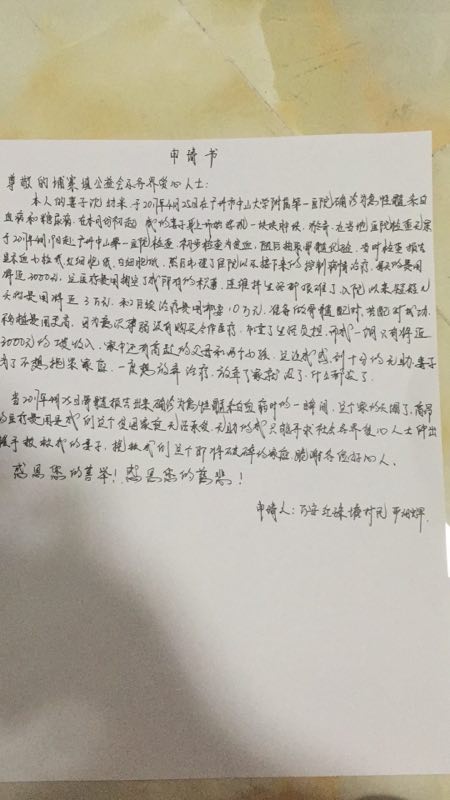 申请书
尊敬的埔寨镇公益会及各界爱心人士：
本人的妻子沈 于2019年4月25日在广州市中山大学附属第一医院确诊为急性髓系白
血病和糖尿病，在本月份初起 我的妻子 一块块肿块， 在当地医院检查
于2019年4月19日赴广州中山第一医院检查，初步检查为贫血，随后抽取骨髓化验，当时检查报告
显示血小板或红细胞低，白细胞低，然后办理了住院以及接下来的控制病情治疗，每天的费用
将近3000元，这医疗费用掏空了我所有的积蓄，
天的费用将近3万元，未来2月後治疗费用都要10万元，准备做骨髓配对，若配对成功，
移植费用更高，因为意识薄弱没有购买合作医疗，加重了生活负担，而我一个月只有将近
3000元的收入，家中还有高龄的父母和两个小孩，这让我感到十分的无助，妻子
为了不想拖累家庭，一度想放弃治疗，放弃了家就没了，什么都没了。
当2019年4月25日骨髓报告出来确诊为急性髓系白血病时的一瞬间，这个家的天塌了，高昂
的医疗费用是我们这个贫困家庭无法承受，无助的我只能寻求社会各界爱心人士伸出
援手救救我的妻子，挽救我们这个即将破碎的家庭，感谢各位好心人。
感恩您的善举！感恩您的慈悲！
申请人： 塘村民